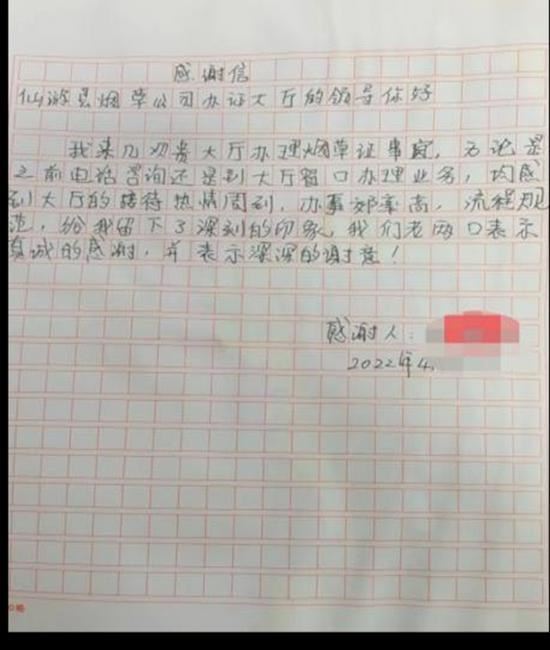 感谢信
仙游县烟草公司办证大厅的领导你好
我来几次贵大厅办理烟草证事宜，无论是
之前电话咨询还是到大厅窗口办理业务，均感
到大厅的接待热情周到，办事效率高，流程规
范，给我留下了深刻的印象，我们老两口表示
真诚的感谢，并表示深深的谢意！
感谢人：
2022年4.